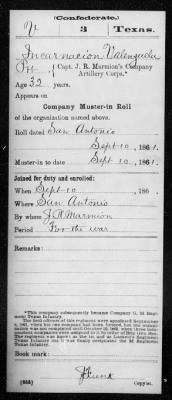 (Confederate.)
3 Texas.
Incarnacion Valenzuela
Pvt, Capt. J. R. Marmion's Company
Artillery Corps.*
Age 32 years.
Appears on
Company Muster-in Roll
of the organization named above.
Roll dated San Antonio
Sept 10, 1861.
Muster-in to date Sept 10, 1861.
Joined for duty and enrolled:
When Sept 10, 186 .
Where San Antonio
By whom J. R. Marmion
Period For the war
Remarks:
*This company subsequently became Company G, 3d Regiment Texas Infantry.
Book mark:
(655) Copyist.